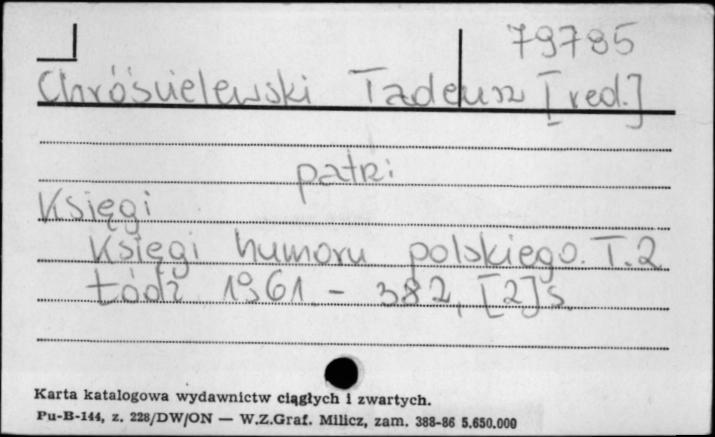 79785
Chróścielewski Tadeusz [red.]
patrz:
Księgi
Księgi humoru polskiego. T.2
Łódź 1961. - 382, [2] s.
Karta katalogowa wydawnictw ciągłych i zwartych.
Pu-B-144, z. 228/DW/ON — W.Z.Graf. Milicz, zam. 388-86 5.650.000